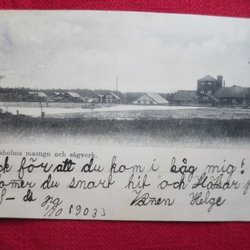 holms masugn och sågverk.
ck för att du kom i håg mig!
omer du snart hit och hälsar p
Vännen Helge